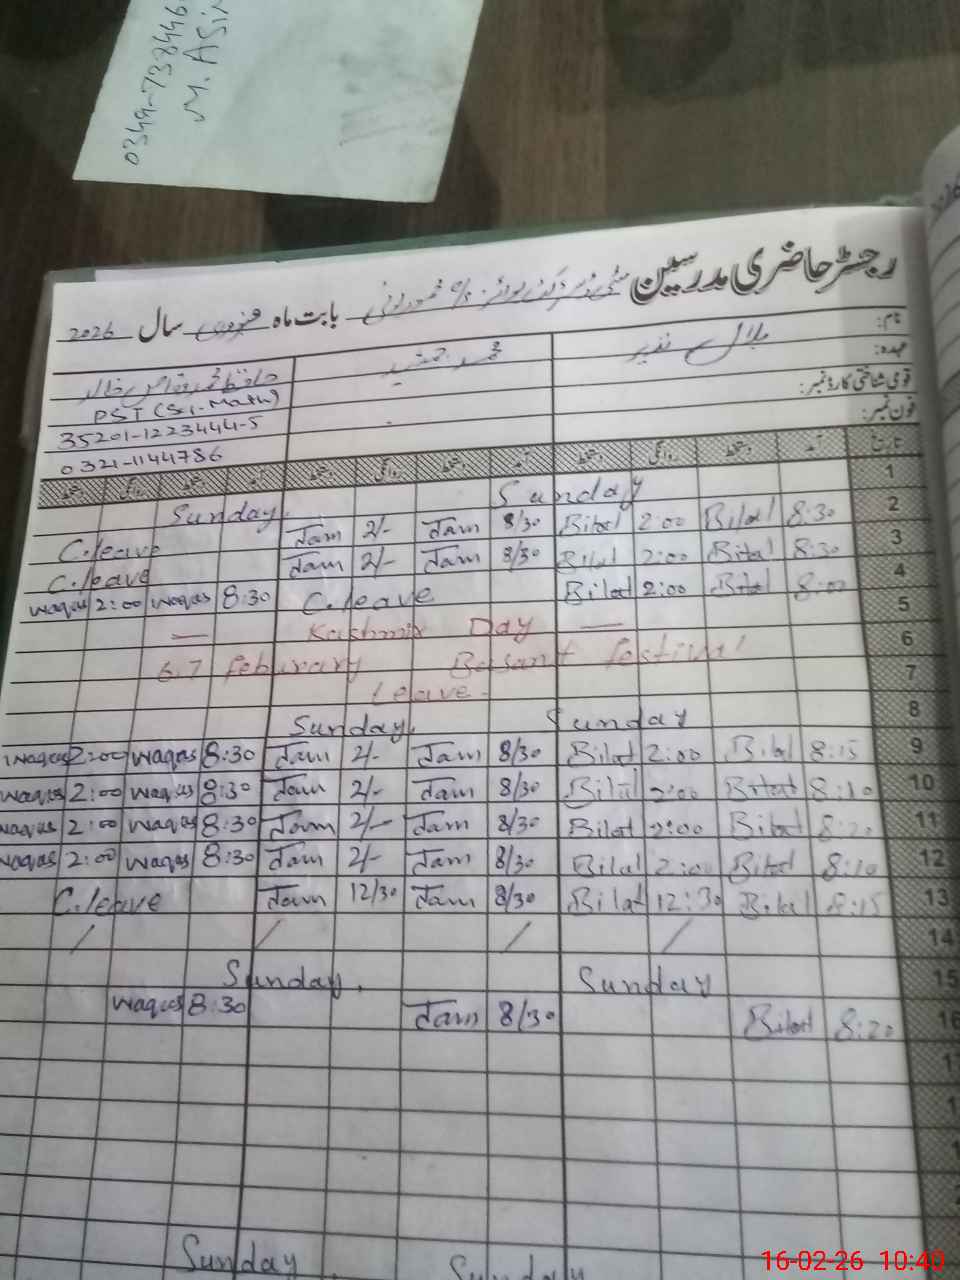 0349-738446
M. Asim
رجسٹر حاضری مدرسین بابت ماہ فروری سال 2026
نام: بلال نذیر محمد جمشید حافظ محمد وقاص خالد
عہدہ: PST (Sci-Math)
قومی شناختی کارڈ نمبر: 35201-1223444-5
فون نمبر: 0321-1144786
تاریخ آمد دستخط روانگی دستخط آمد دستخط روانگی دستخط آمد دستخط روانگی دستخط
Sunday. Sunday 1
C.leave Jam 2/- Jam 8/30 Bilal 2:00 Bilal 8:30 2
C.leave Jam 2/- Jam 8/30 Bilal 2:00 Bilal 8:30 3
waqas 2:00 waqas 8:30 C.leave Bilal 2:00 Bilal 8:00 4
— Kashmir Day — 5
6.7 Feburary Basant festival 6
Leave. 7
Sunday. Sunday 8
waqas 2:00 waqas 8:30 Jam 2/- Jam 8/30 Bilal 2:00 Bilal 8:15 9
waqas 2:00 waqas 8:30 Jam 2/- Jam 8/30 Bilal 2:00 Bilal 8:10 10
waqas 2:00 waqas 8:30 Jam 2/- Jam 8/30 Bilal 2:00 Bilal 8:20 11
waqas 2:00 waqas 8:30 Jam 2/- Jam 8/30 Bilal 2:00 Bilal 8:10 12
C.leave Jam 12/30 Jam 8/30 Bilal 12:30 Bilal 8:15 13
/ / / / 14
Sunday. Sunday 15
waqas 8:30 Jam 8/30 Bilal 8:20 16
Sunday Sunday
16-02-26 10:40